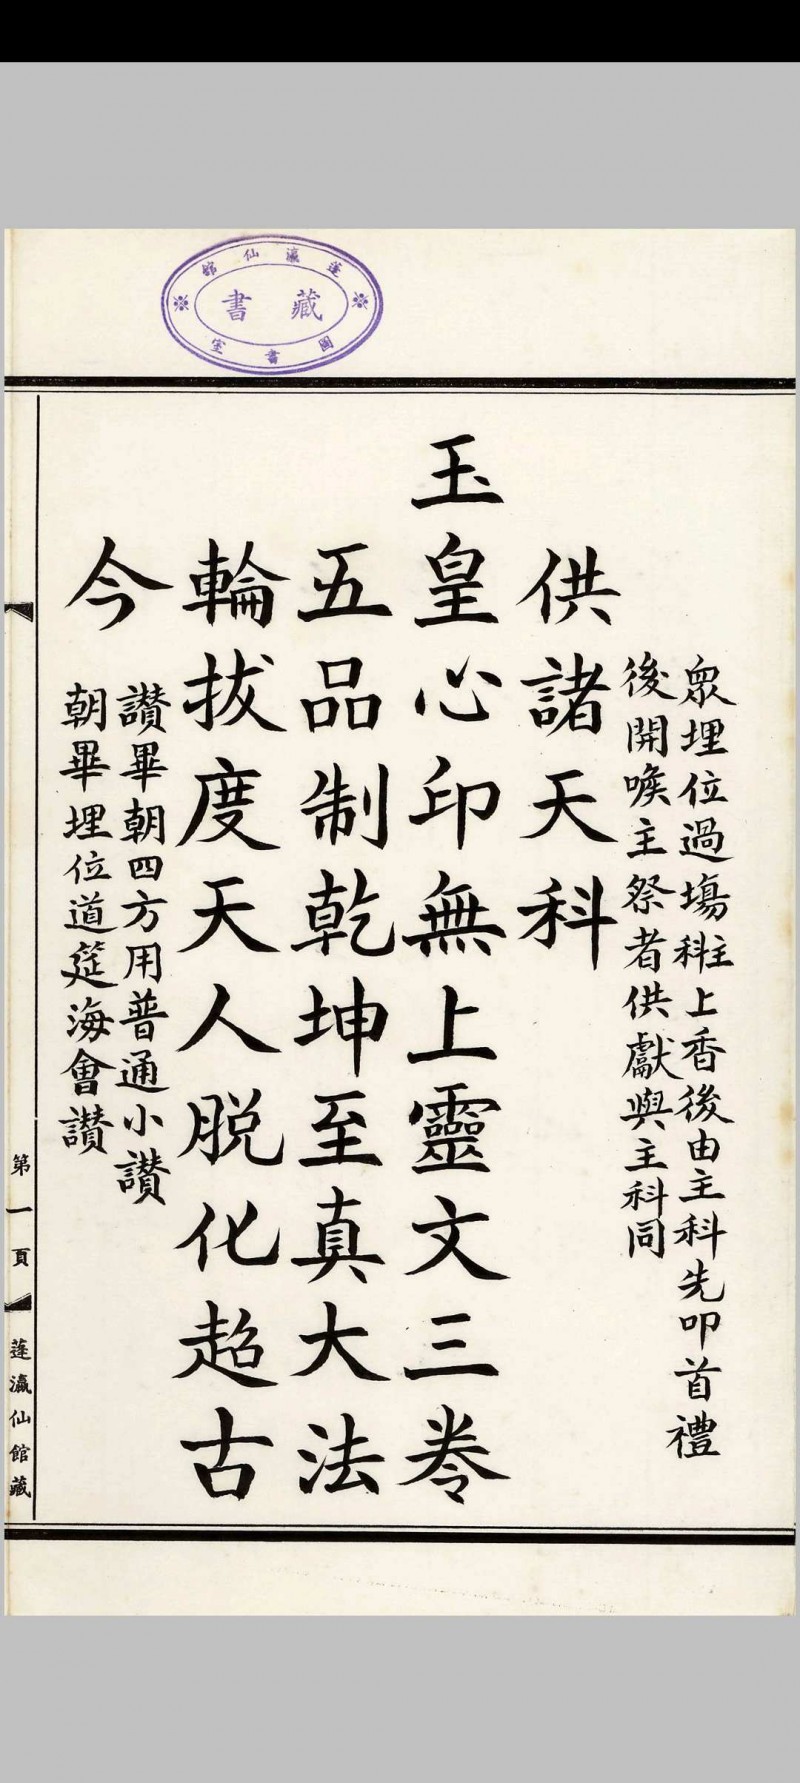 蓬瀛仙館
藏書
圖書室
眾埋位過塲科主上香後由主科先叩首禮
後開喚主祭者供獻與主科同
供諸天科
玉皇心印無上靈文三卷
五品制乾坤至真大法
輪拔度天人脱化超古
今
讃畢朝四方用普通小讃
朝畢埋位道筵海會讃
第一頁
蓬瀛仙館藏